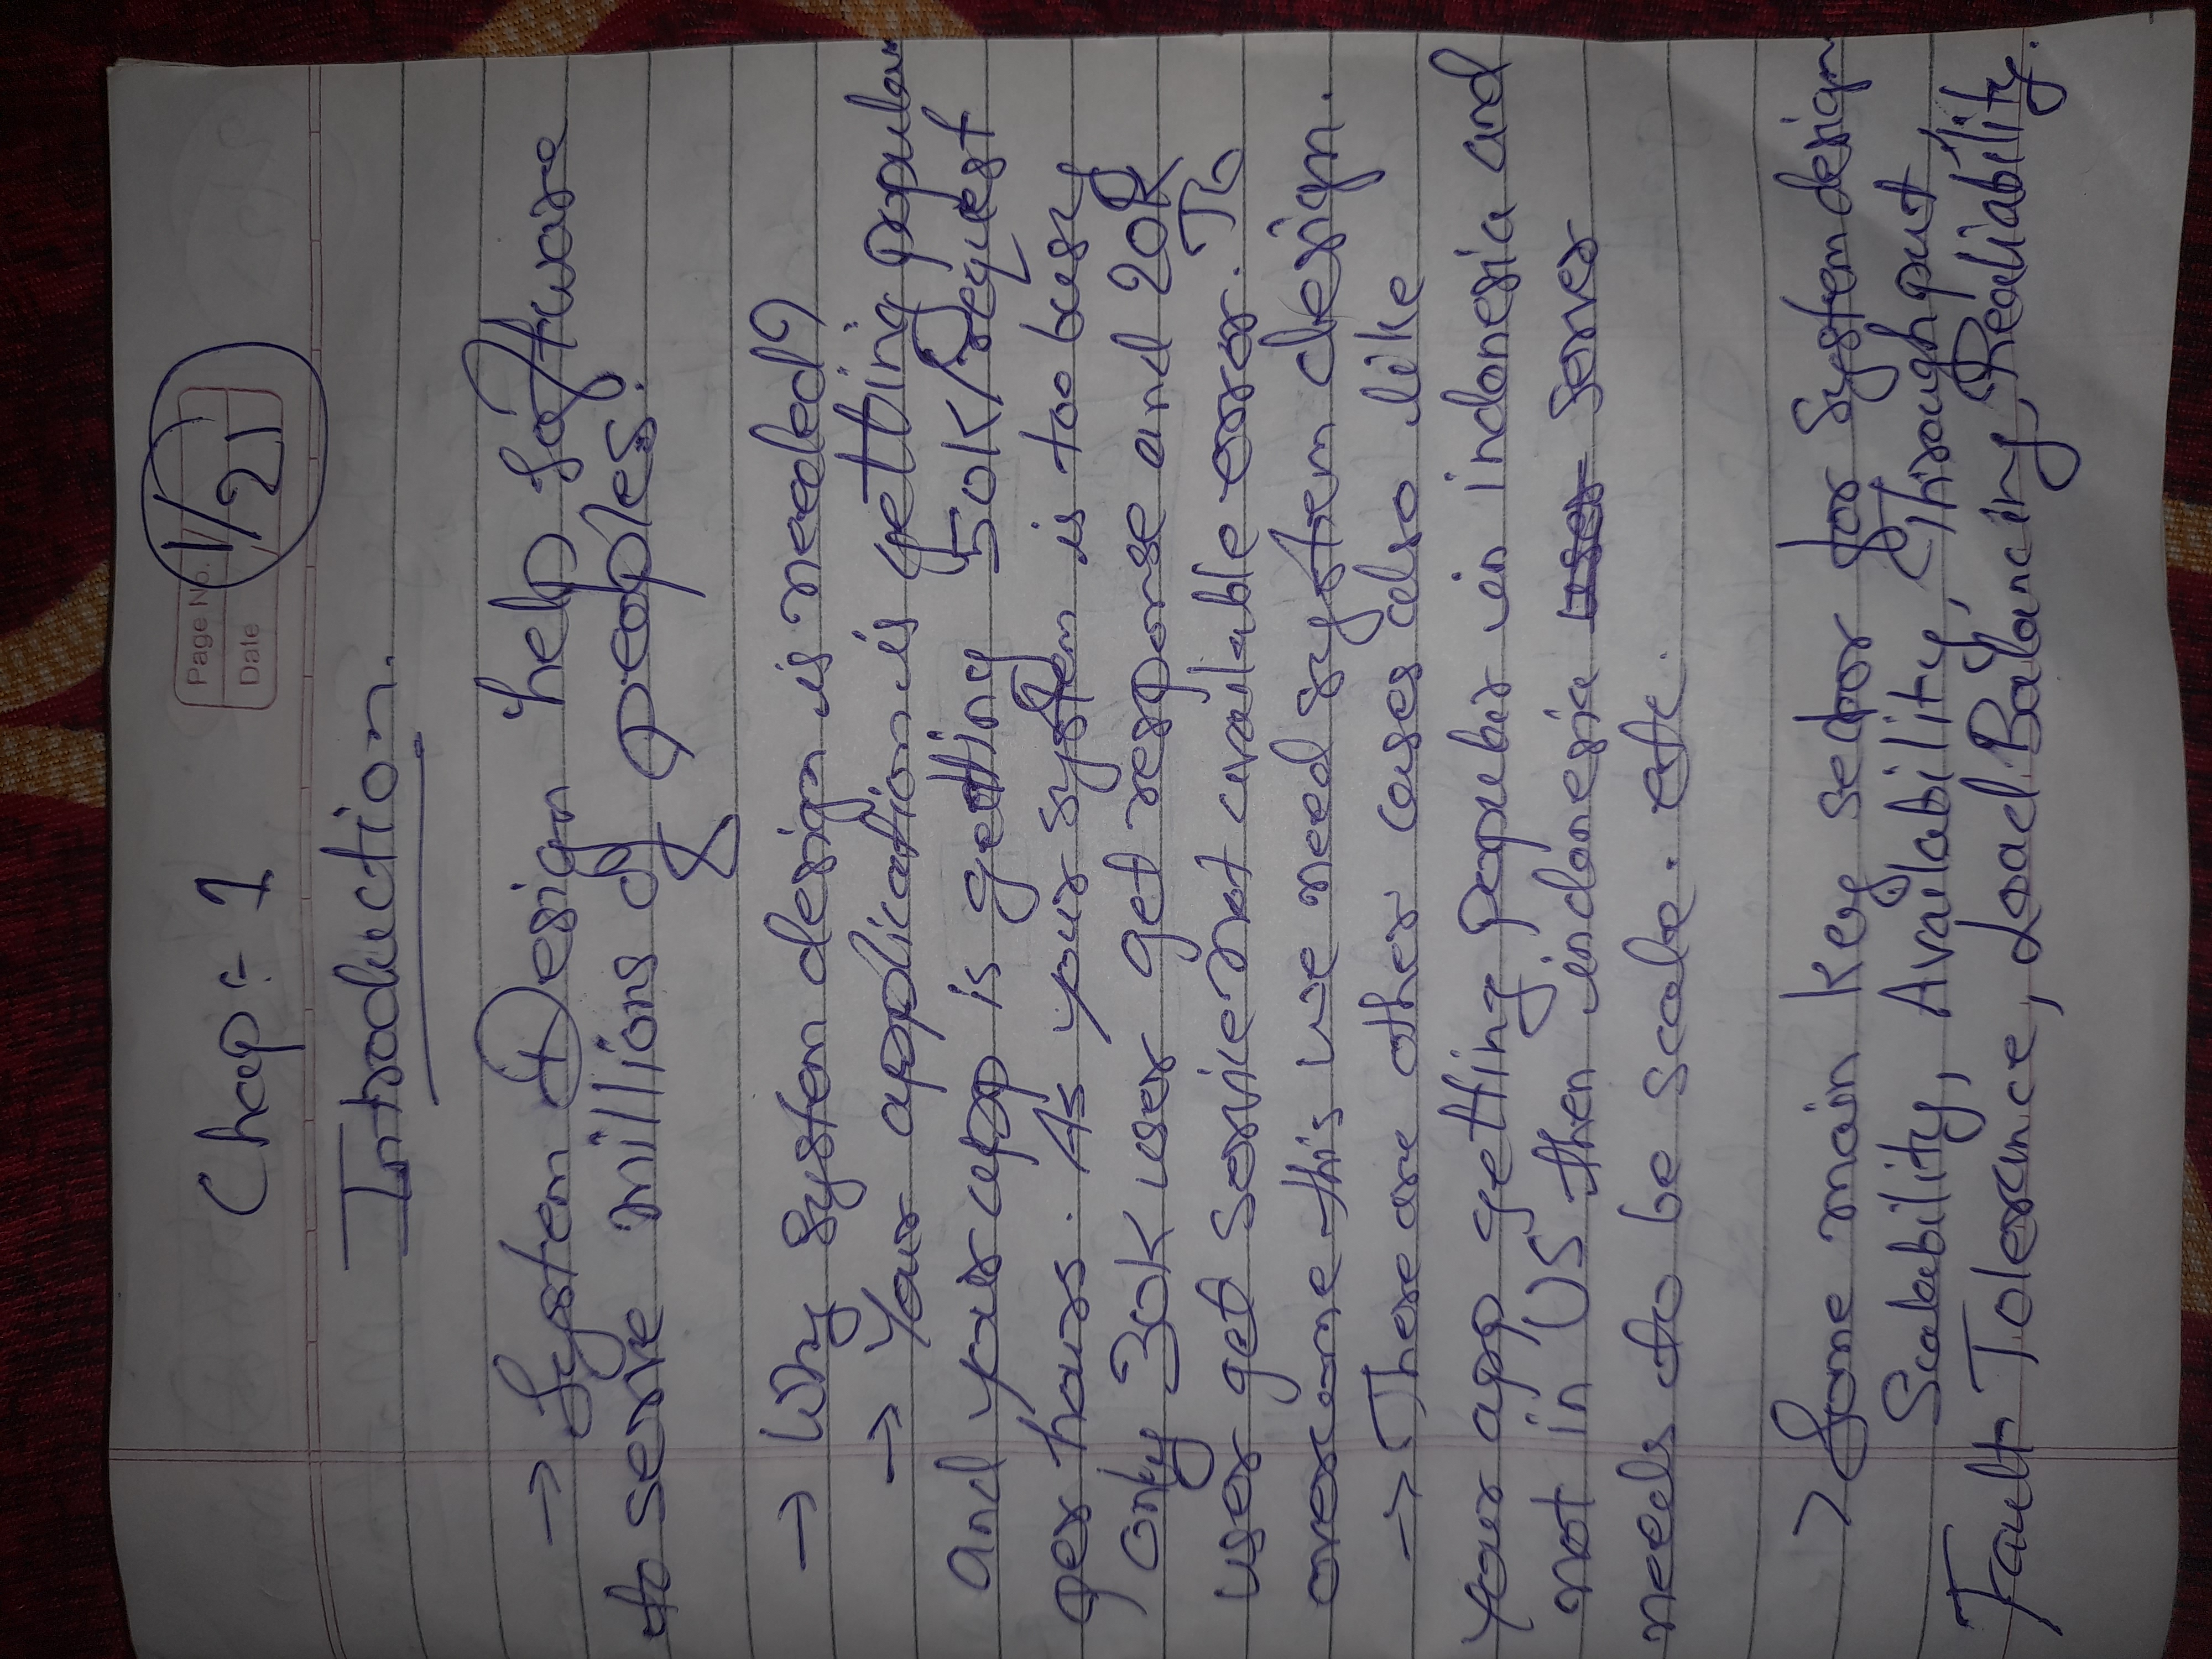 Chap:- 1
Page No. 1/21
Date
Introduction.
→ System Design help software
to serve millions of peoples.
→ Why system design is needed?
→ Your application is getting popular
and your app is getting 50K/request
per hours. As your system is too busy
only 30K user get response and 20K
user get service not available error. To
overcome this we need system design.
→ There are other cases also like
your app getting popular in indonesia and
not in US then indonesia user server
needs to be scale. etc.
> Some main key sector for System design
Scalability, Availability, Throughput,
Fault Tolerance, Load Balancing, Realiability.